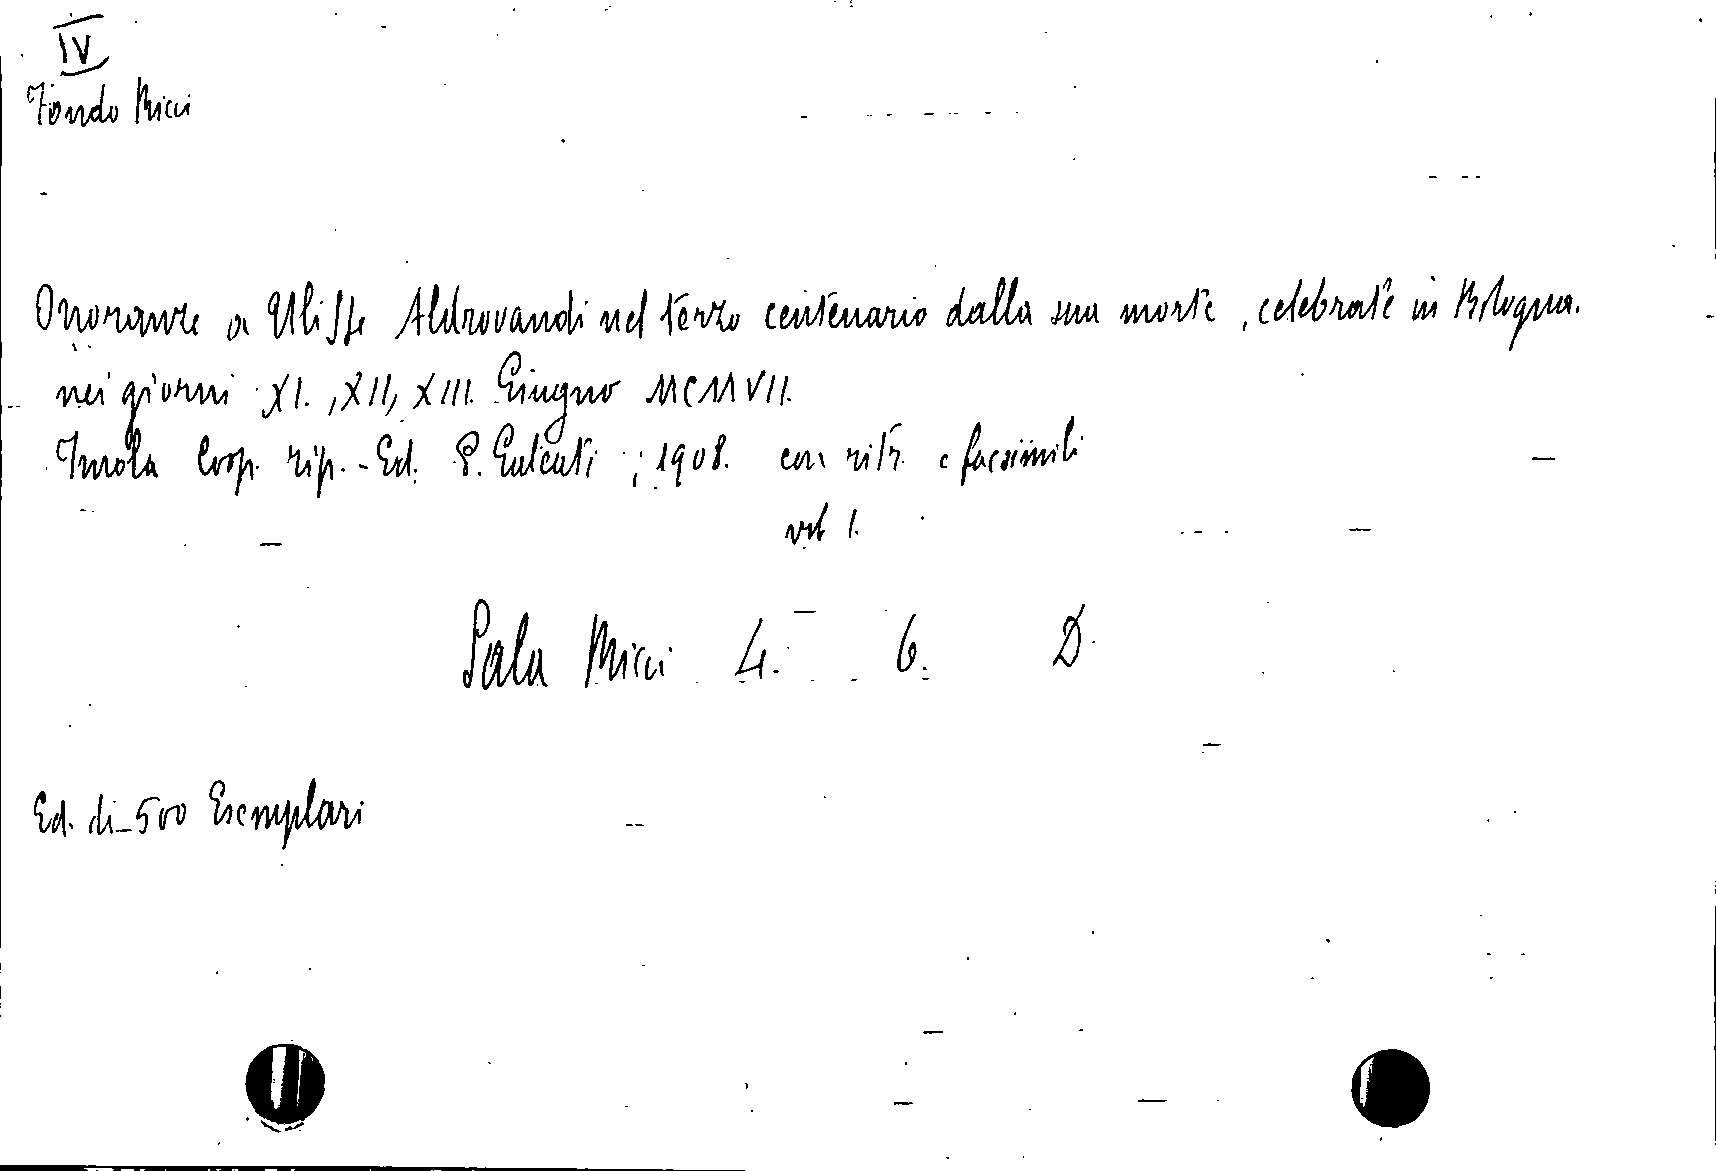 IV
Fondo Ricci
Onoranze a Ulisse Aldrovandi nel terzo centenario dalla sua morte, celebrate in Bologna.
nei giorni XI., XII, XIII. Giugno MCMVII.
Imola Coop. tip. - Ed. P. Galeati ; 1908. con ritr. e facsimili
vol 1.
Sala Ricci 4. 6. D.
Ed. di 500 Esemplari